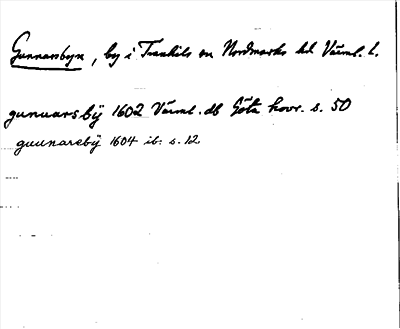 Gunnarsbyn, by i Trankils sn Nordmarks hd Värml. l.
gunuarsbÿ 1602 Värml. db Göta hovr. s. 50
guunarsbÿ 1604 ib. s. 12